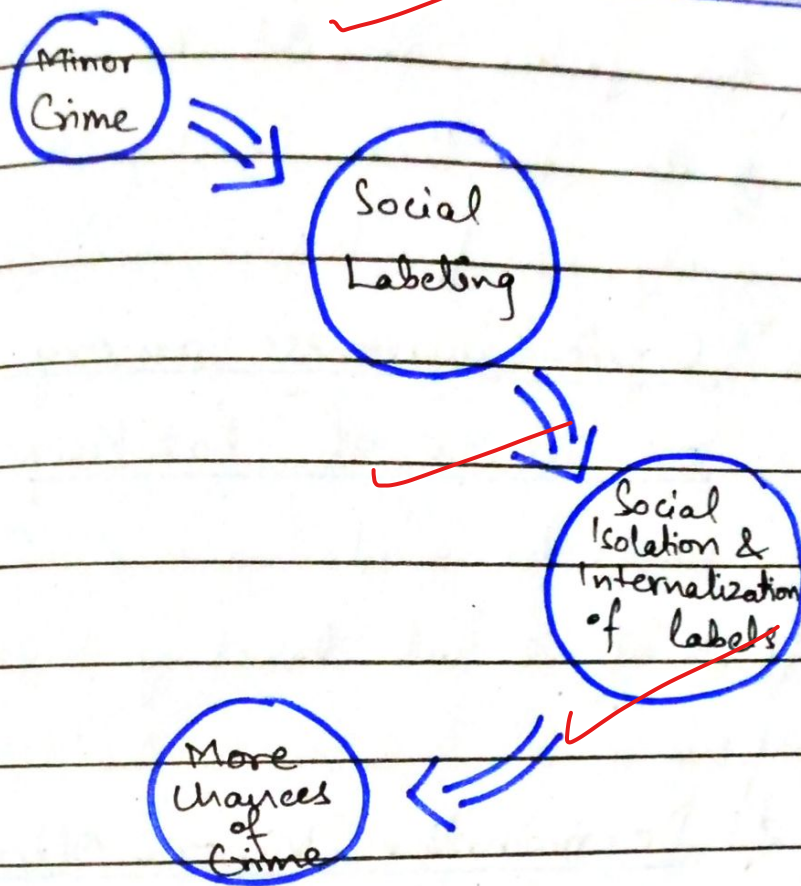 Minor
Crime
Social
Labeling
Social
Isolation &
Internalization
of labels
More
Chances
of
Crime